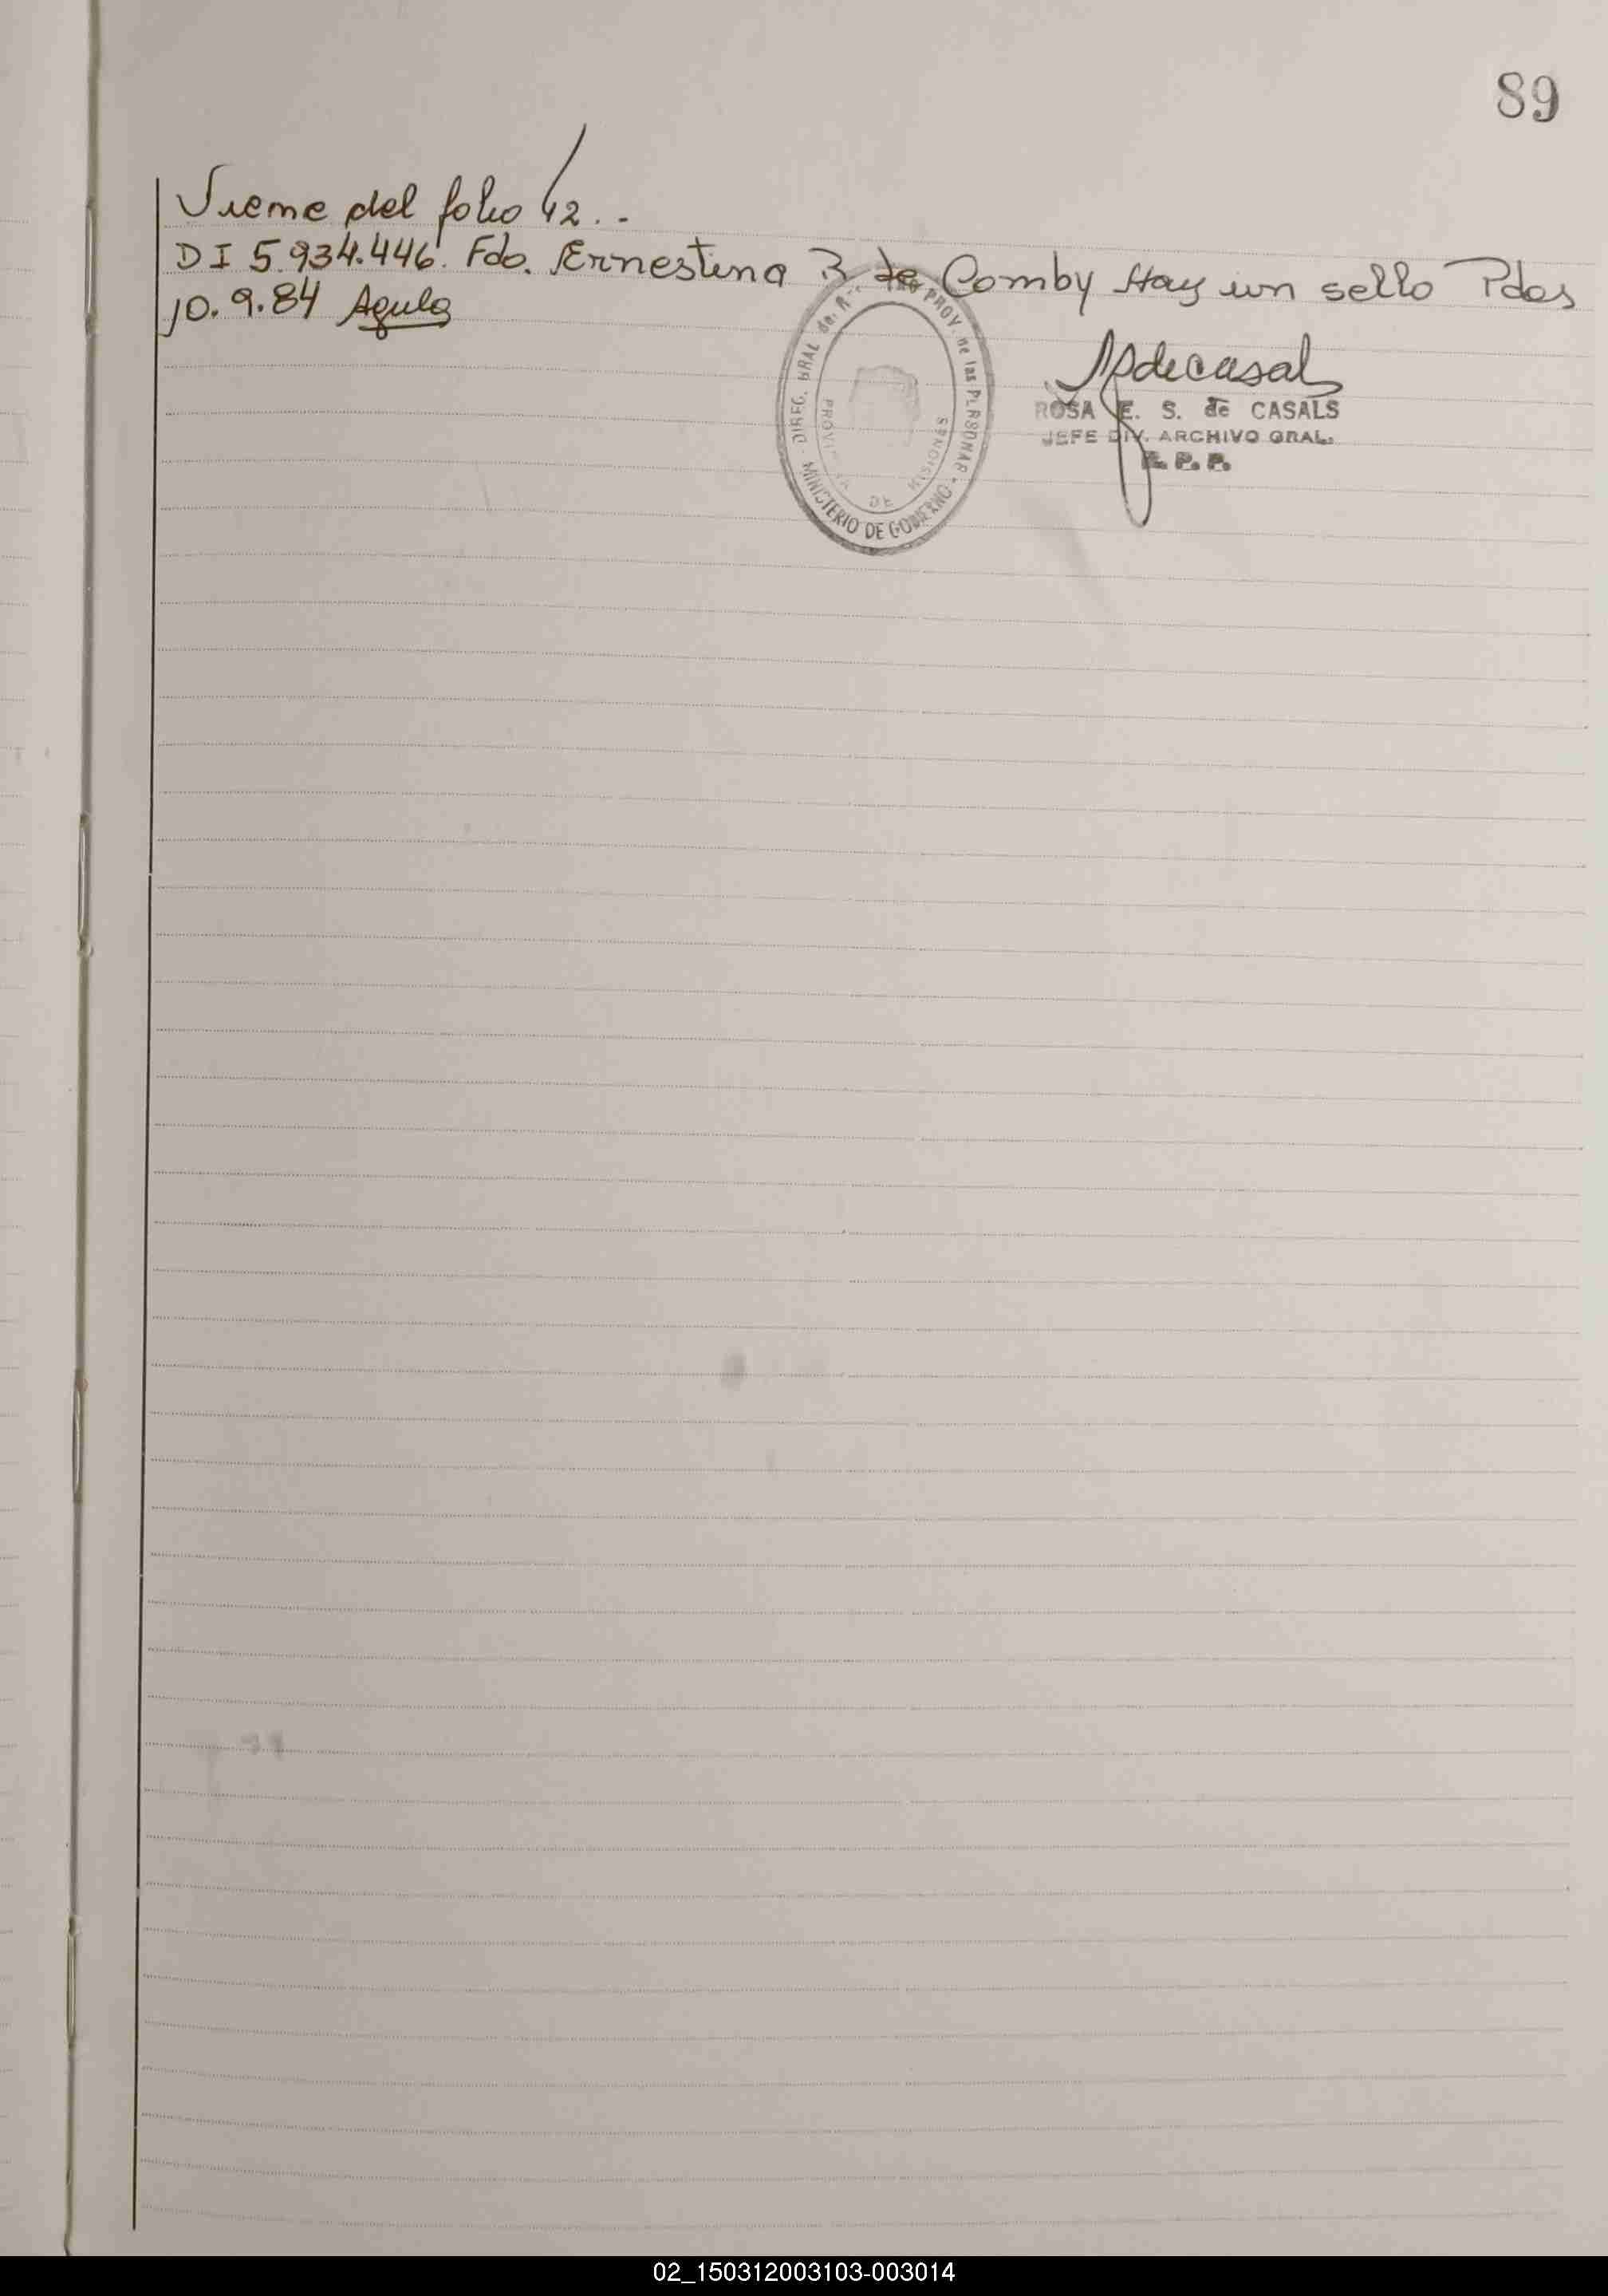 89
Viene del folio 42..-
DI 5.934.446. Fdo. Ernestina B de Comby Hay un sello Pdas
10.9.84 Aguila
DIREC. GRAL de. PROV. de las PERSONAS - MINISTERIO DE GOBIERNO -
PROVINCIA DE MISIONES
ROSA E. S. de CASALS
JEFE DIV. ARCHIVO GRAL.
R. P. P.
02_150312003103-003014